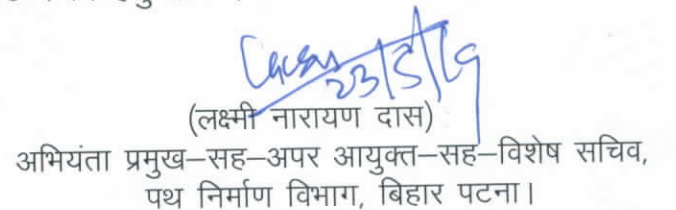 23/5/19
(लक्ष्मी नारायण दास)
अभियंता प्रमुख–सह–अपर आयुक्त–सह–विशेष सचिव,
पथ निर्माण विभाग, बिहार पटना।